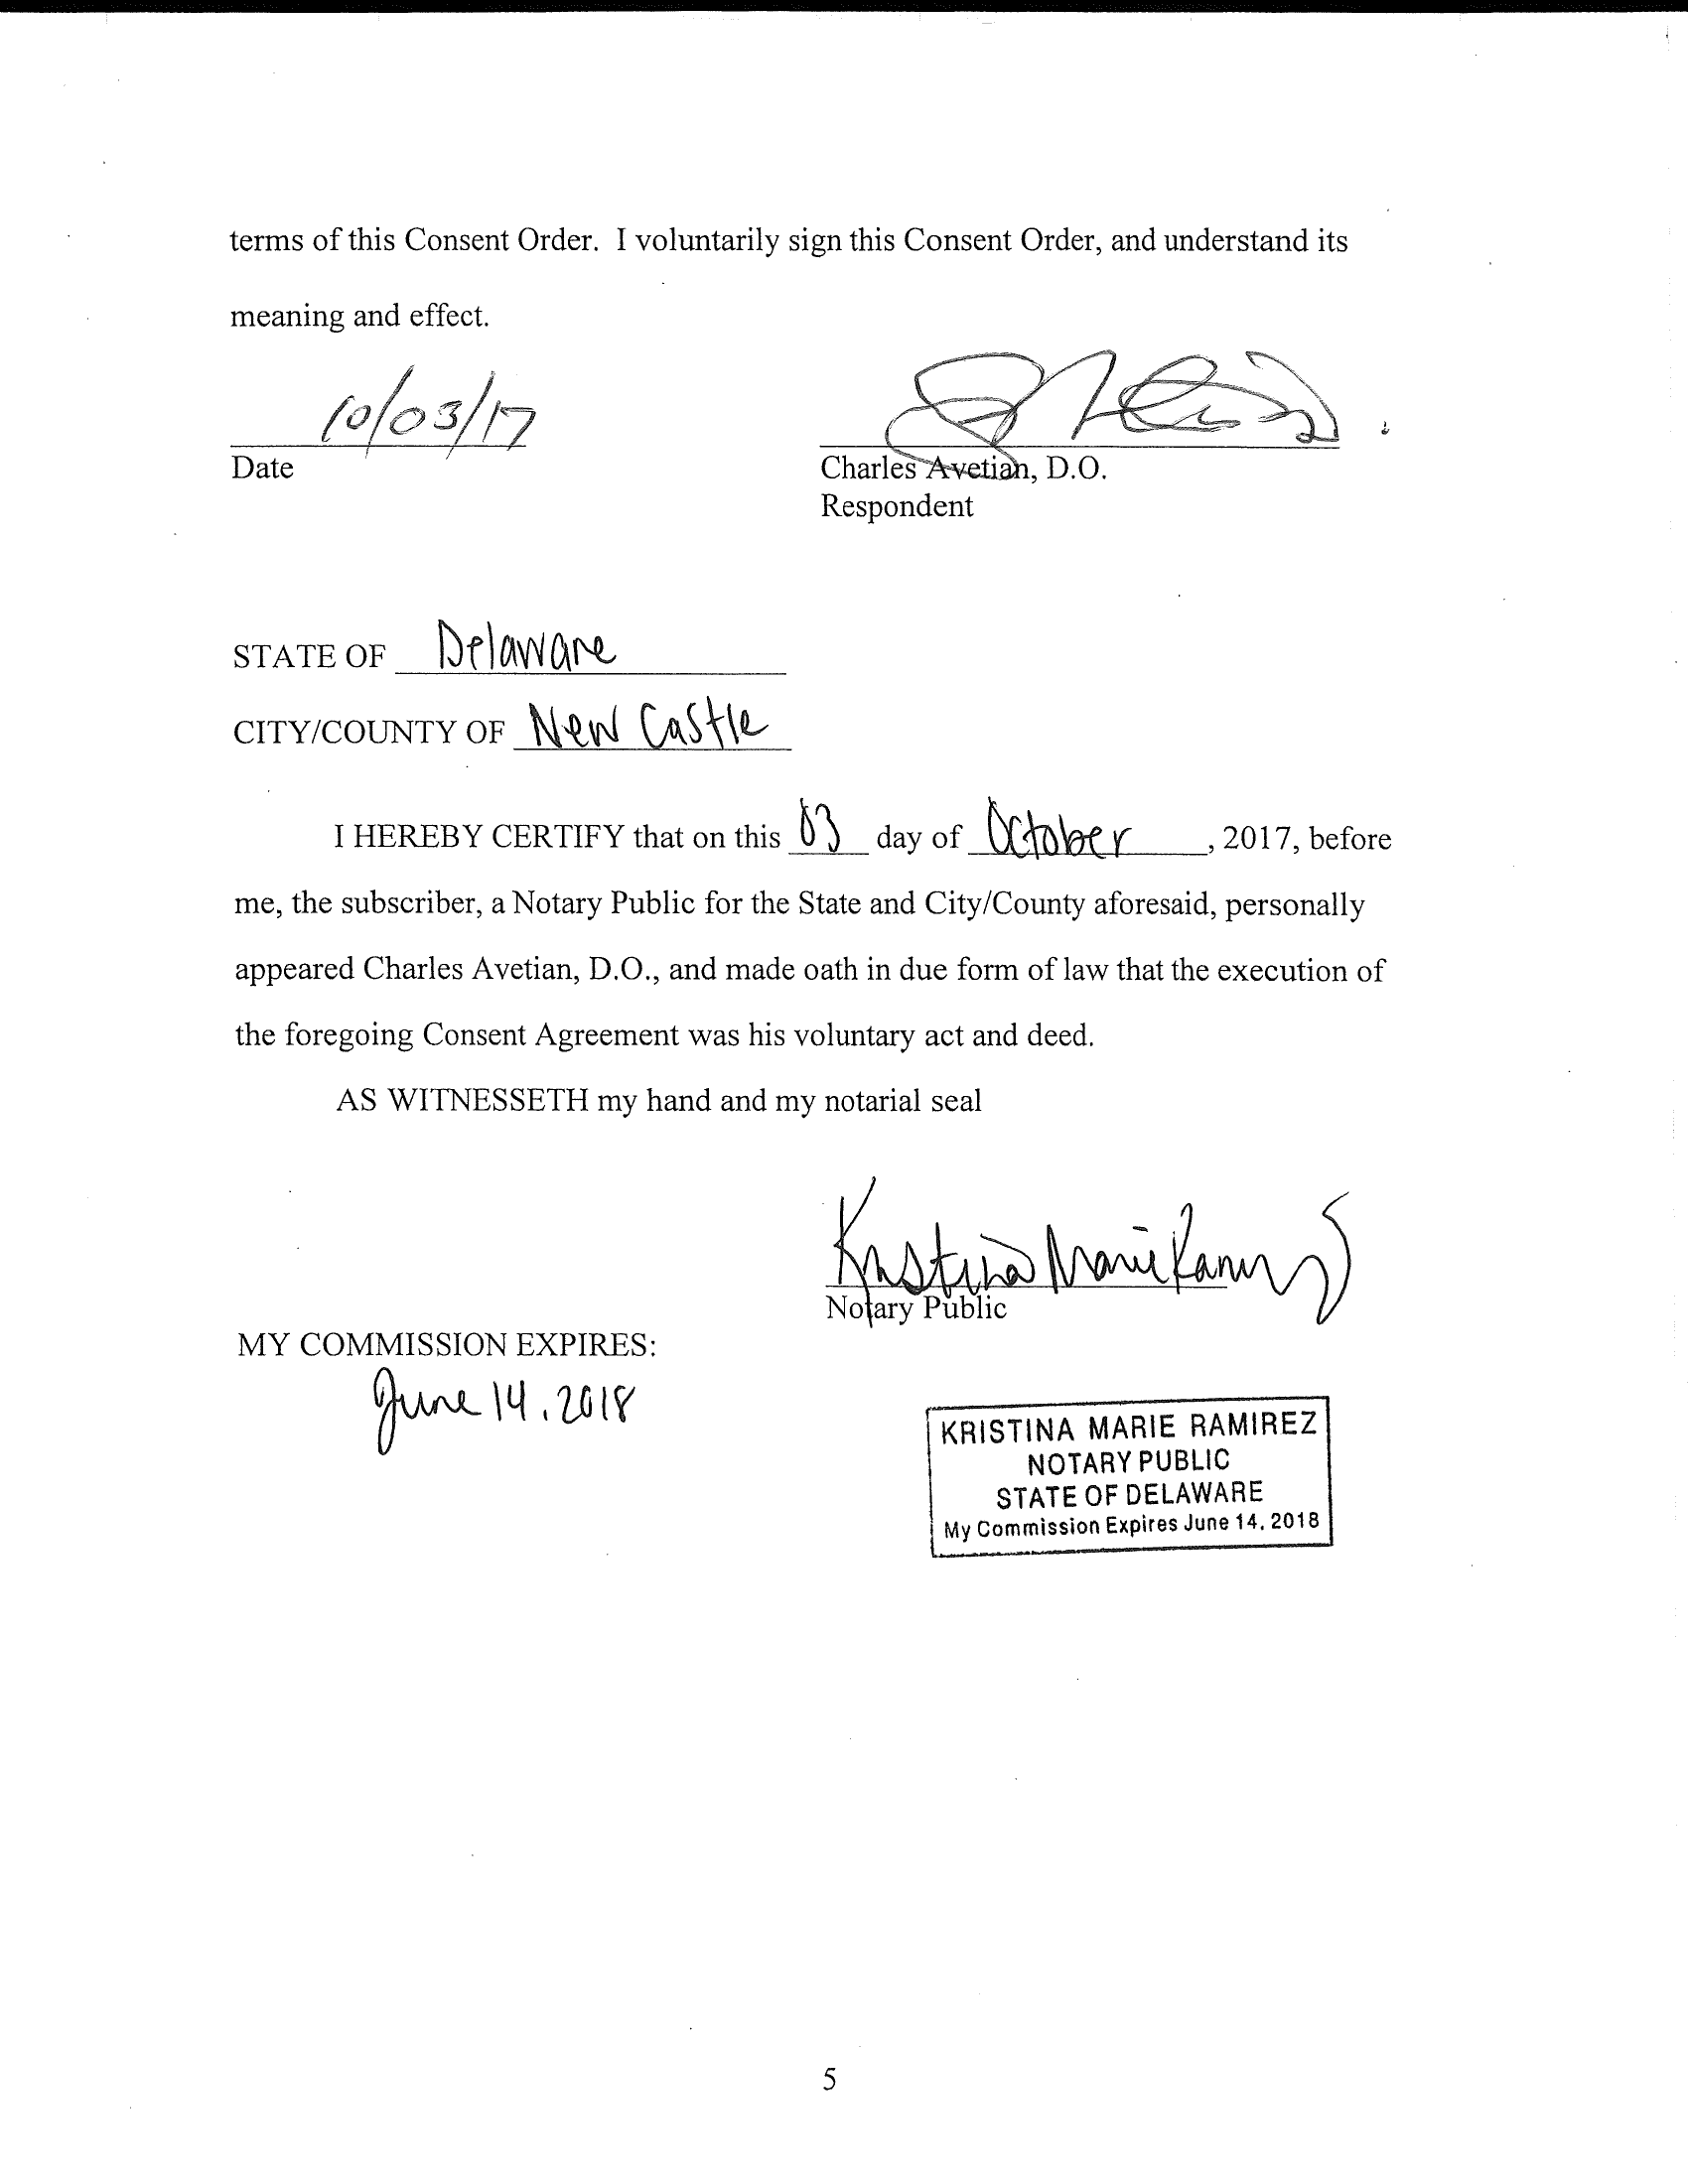 terms of this Consent Order. I voluntarily sign this Consent Order, and understand its
meaning and effect.
10/03/17
Date
Charles Avetian, D.O.
Respondent
STATE OF Delaware
CITY/COUNTY OF New Castle
I HEREBY CERTIFY that on this 03 day of October, 2017, before
me, the subscriber, a Notary Public for the State and City/County aforesaid, personally
appeared Charles Avetian, D.O., and made oath in due form of law that the execution of
the foregoing Consent Agreement was his voluntary act and deed.
AS WITNESSETH my hand and my notarial seal
Kristina Marie Ramirez
Notary Public
MY COMMISSION EXPIRES:
June 14, 2018
KRISTINA MARIE RAMIREZ
NOTARY PUBLIC
STATE OF DELAWARE
My Commission Expires June 14, 2018
5